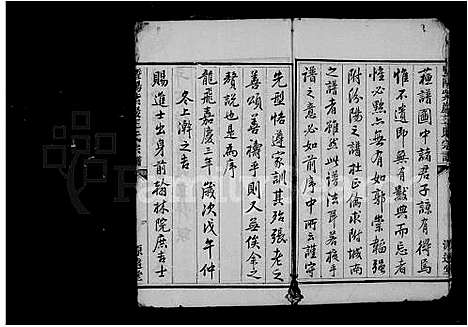 蘓譜圖中諸君子諒有得焉
惟不遺即無有數典而忘者
惟必黜亦無有如郭崇韜强
附汾陽之譜杜正倫求附城南
之譜者雖然此譜法耳若撰手
譜之意必如前序中所云謹守
先型恪遵家訓其殆張老之
善頌善禱乎則又無俟余之
贅說也是為序
龍飛嘉慶三年歲次戊午仲
冬上澣之吉
賜進士出身前翰林院庶吉士